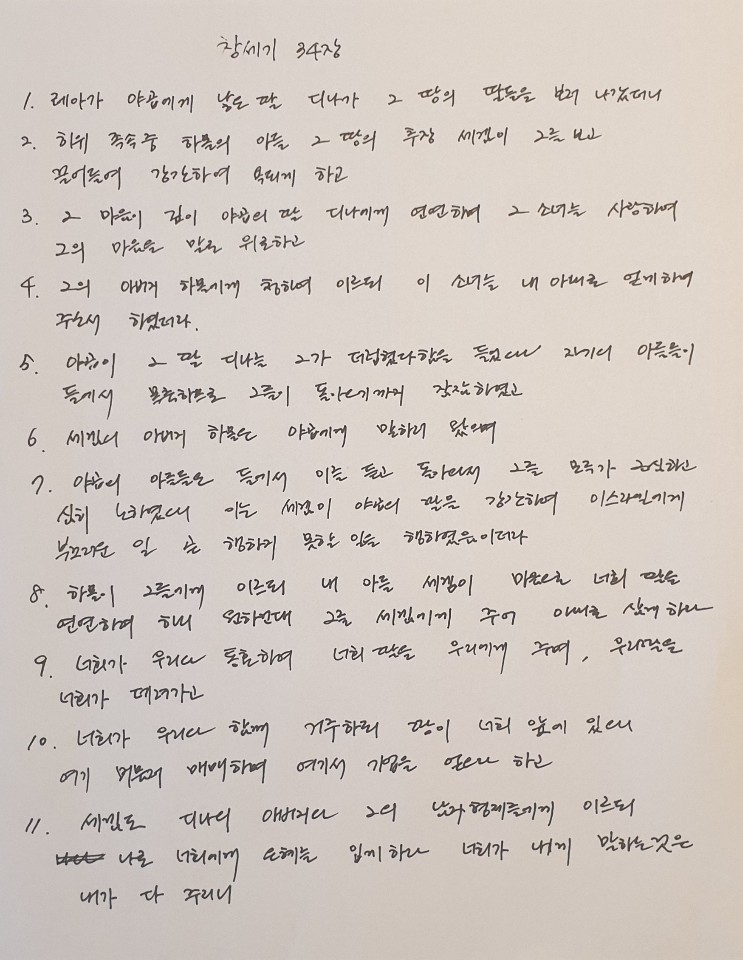 창세기 34장
1. 레아가 야곱에게 낳은 딸 디나가 그 땅의 딸들을 보러 나갔더니
2. 히위 족속중 하몰의 아들 그 땅의 추장 세겜이 그를 보고
끌어들여 강간하여 욕되게 하고
3. 그 마음이 깊이 야곱의 딸 디나에게 연연하며 그 소녀를 사랑하여
그의 마음을 말로 위로하고
4. 그의 아버지 하몰에게 청하여 이르되 이 소녀를 내 아내로 얻게하여
주소서 하였더라.
5. 야곱이 그 딸 디나를 그가 더럽혔다함을 들었으나 자기의 아들들이
들에서 목축하므로 그들이 돌아오기까지 잠잠하였고
6. 세겜의 아버지 하몰은 야곱에게 말하러 왔으며
7. 야곱의 아들들은 들에서 이를 듣고 돌아와서 그들 모두가 근심하고
심히 노하였으니 이는 세겜이 야곱의 딸을 강간하여 이스라엘에게
부끄러운 일 곧 행하지 못할 일을 행하였음이더라
8. 하몰이 그들에게 이르되 내 아들 세겜이 마음으로 너희 딸을
연연하여 하니 원하건대 그를 세겜에게 주어 아내로 삼게 하라
9. 너희가 우리와 통혼하여 너희 딸을 우리에게 주며, 우리딸을
너희가 데려가고
10. 너희가 우리와 함께 거주하되 땅이 너희 앞에 있으니
여기 머물러 매매하며 여기서 기업을 얻으라 하고
11. 세겜도 디나의 아버지와 그의 남자형제들에게 이르되
나로 너희에게 은혜를 입게 하라 너희가 내게 말하는것은
내가 다 주리니